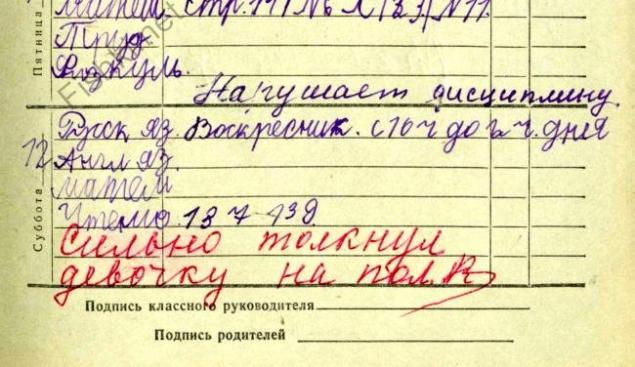 Матем. стр. 111 № 11.
Пятница
Труд
Физкуль.
Нарушает дисциплину
Русск яз. Воскресник. с 10 ч до 2 ч. дня
12 Англ яз.
матем
Суббота
Чтение 137-139
Сильно толкнул
девочку на пол.
Подпись классного руководителя
Подпись родителей
Fishki.net